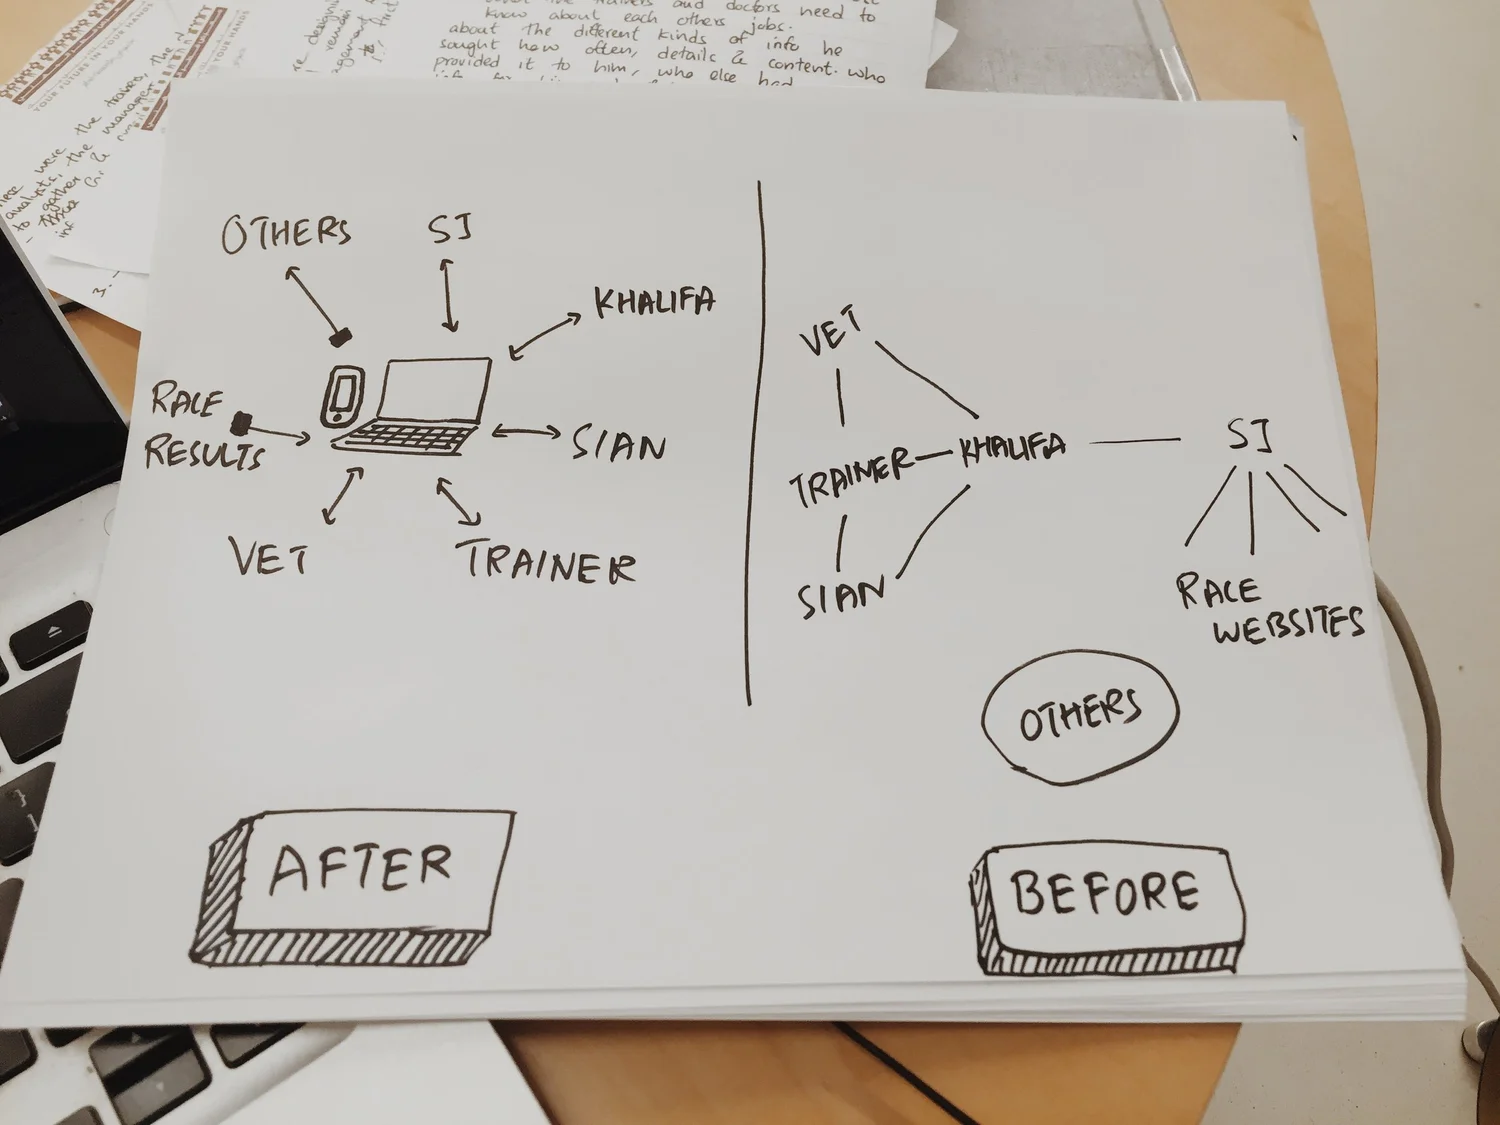 over the trainers and doctors need to
know about each others jobs.
about the different kinds of info he
sought how often, details & content. who
provided it to him, who else had
YOUR FUTURE IN YOUR HANDS
YOUR HANDS
the trainers, the
were
analysts, the manager
to gather &
inf
3.
OTHERS
SJ
KHALIFA
RACE
RESULTS
SIAN
VET
TRAINER
AFTER
VET
TRAINER
KHALIFA
SJ
SIAN
RACE
WEBSITES
OTHERS
BEFORE